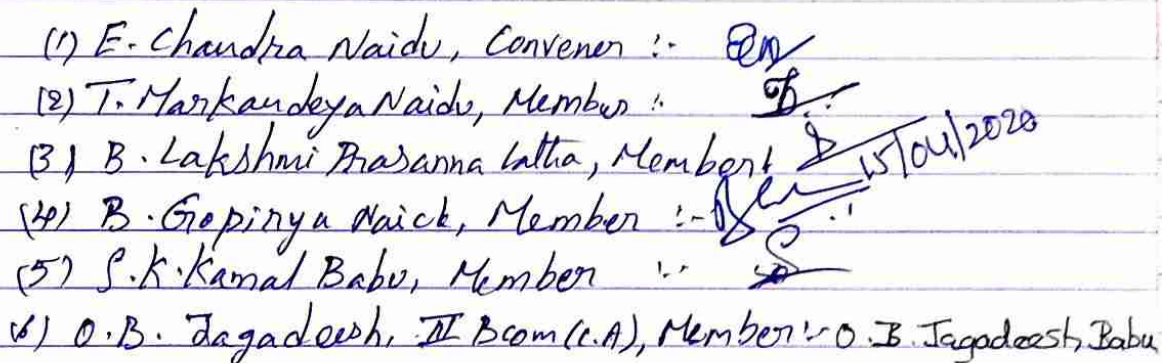 (1) E. Chandra Naidu, Convener :-
(2) T. Markandeya Naidu, Member :-
(3) B. Lakshmi Prasanna Latha, Member :-
15/04/2020
(4) B. Gopinya Naick, Member :-
(5) S.K. Kamal Babu, Member :-
(6) O.B. Jagadeesh, II Bcom (C.A), Member :- O.B. Jagadeesh Babu